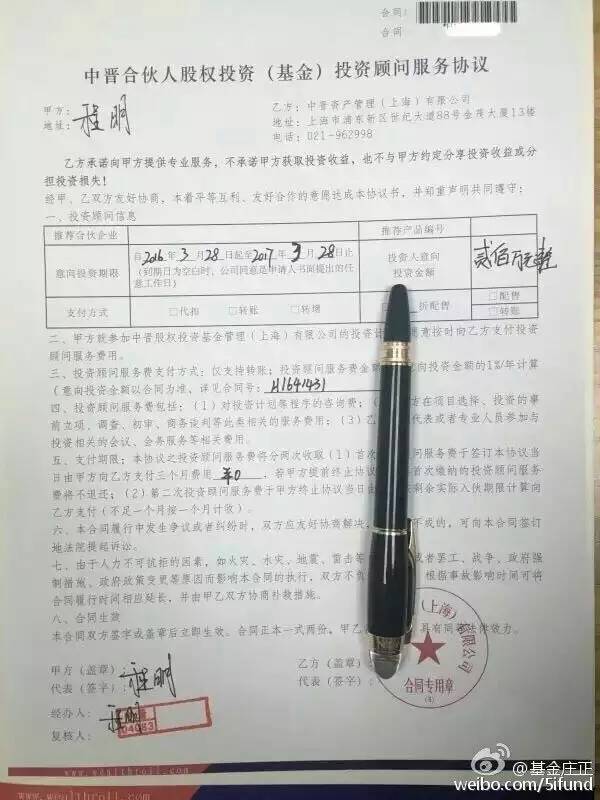 合同：
合同
中晋合伙人股权投资（基金）投资顾问服务协议
甲方：程明
地址：
乙方：中晋资产管理（上海）有限公司
地址：上海市浦东新区世纪大道88号金茂大厦13楼
电话：021-962998
乙方承诺向甲方提供专业服务，不承诺甲方获取投资收益，也不与甲方约定分享投资收益或分
担投资损失！
经甲、乙双方友好协商，本着平等互利、友好合作的意愿达成本协议书，并郑重声明共同遵守：
一、投资顾问信息
推荐合伙企业
推荐产品编号
意向投资期限
自2016年3月28日起至2017年3月28日止
(到期日为空白时，公司同意是申请人书面提出的任
意工作日)
投资人意向
投资金额
贰佰万元整
支付方式
□代扣 □转账 □转增
折配售
□配售
□转账
二、甲方就参加中晋股权投资基金管理（上海）有限公司的投资计 愿意按时向乙方支付投资
顾问服务费用。
三、投资顾问服务费支付方式：仅支持转账；投资顾问服务费金额 意向投资金额的1%/年计算
（意向投资金额以合同为准，详见合同号：H1641431
四、投资顾问服务费包括：（1）对投资计划等程序的咨询费；（2 方在项目选择、投资的事
前立项、调查、初审、商务谈判等此类相关的服务费用；（3）乙 代表或者专业人员参加与
投资相关的会议、会务服务等相关费用。
五、支付期限：本协议之投资顾问服务费将分两次收取（1）首次 问服务费于签订本协议当
日由甲方向乙方支付三个月费用 ￥0 ；若甲方提前终止协议 首次缴纳的投资顾问服务
费将不退还；（2）第二次投资顾问服务费于甲方终止协议当日由 剩余实际入伙期限计算向
乙方支付（不足一个月按一个月计收）。
六、本合同履行中发生争议或者纠纷时，双方应友好协商解决， 不成的，可向本合同签订
地法院提起诉讼。
七、由于人力不可抗拒的因素，如火灾、水灾、地震、雷击等 或者罢工、战争、政府强
制措施、政府政策变更等原因而影响本合同的执行，双方不负 根据事故影响时间可将
合同履行时间相应延长，并由甲乙双方协商补救措施。
八、合同生效
本合同双方签字或盖章后立即生效。合同正本一式两份，甲乙 具有同等法律效力。
甲方（盖章）
代表（签字）：程明
乙方（盖章）
代表（签字）：
经办人：程明
复核人：
04083
（上海）有限公司
合同专用章
www.wealthroll.com
www.wealthroll.com
@基金庄正
weibo.com/5ifund